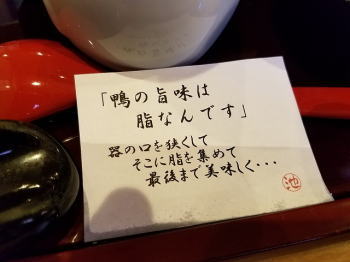 「鴨の旨味は
脂なんです」
器の口を狭くして
そこに脂を集めて
最後まで美味しく・・・
池